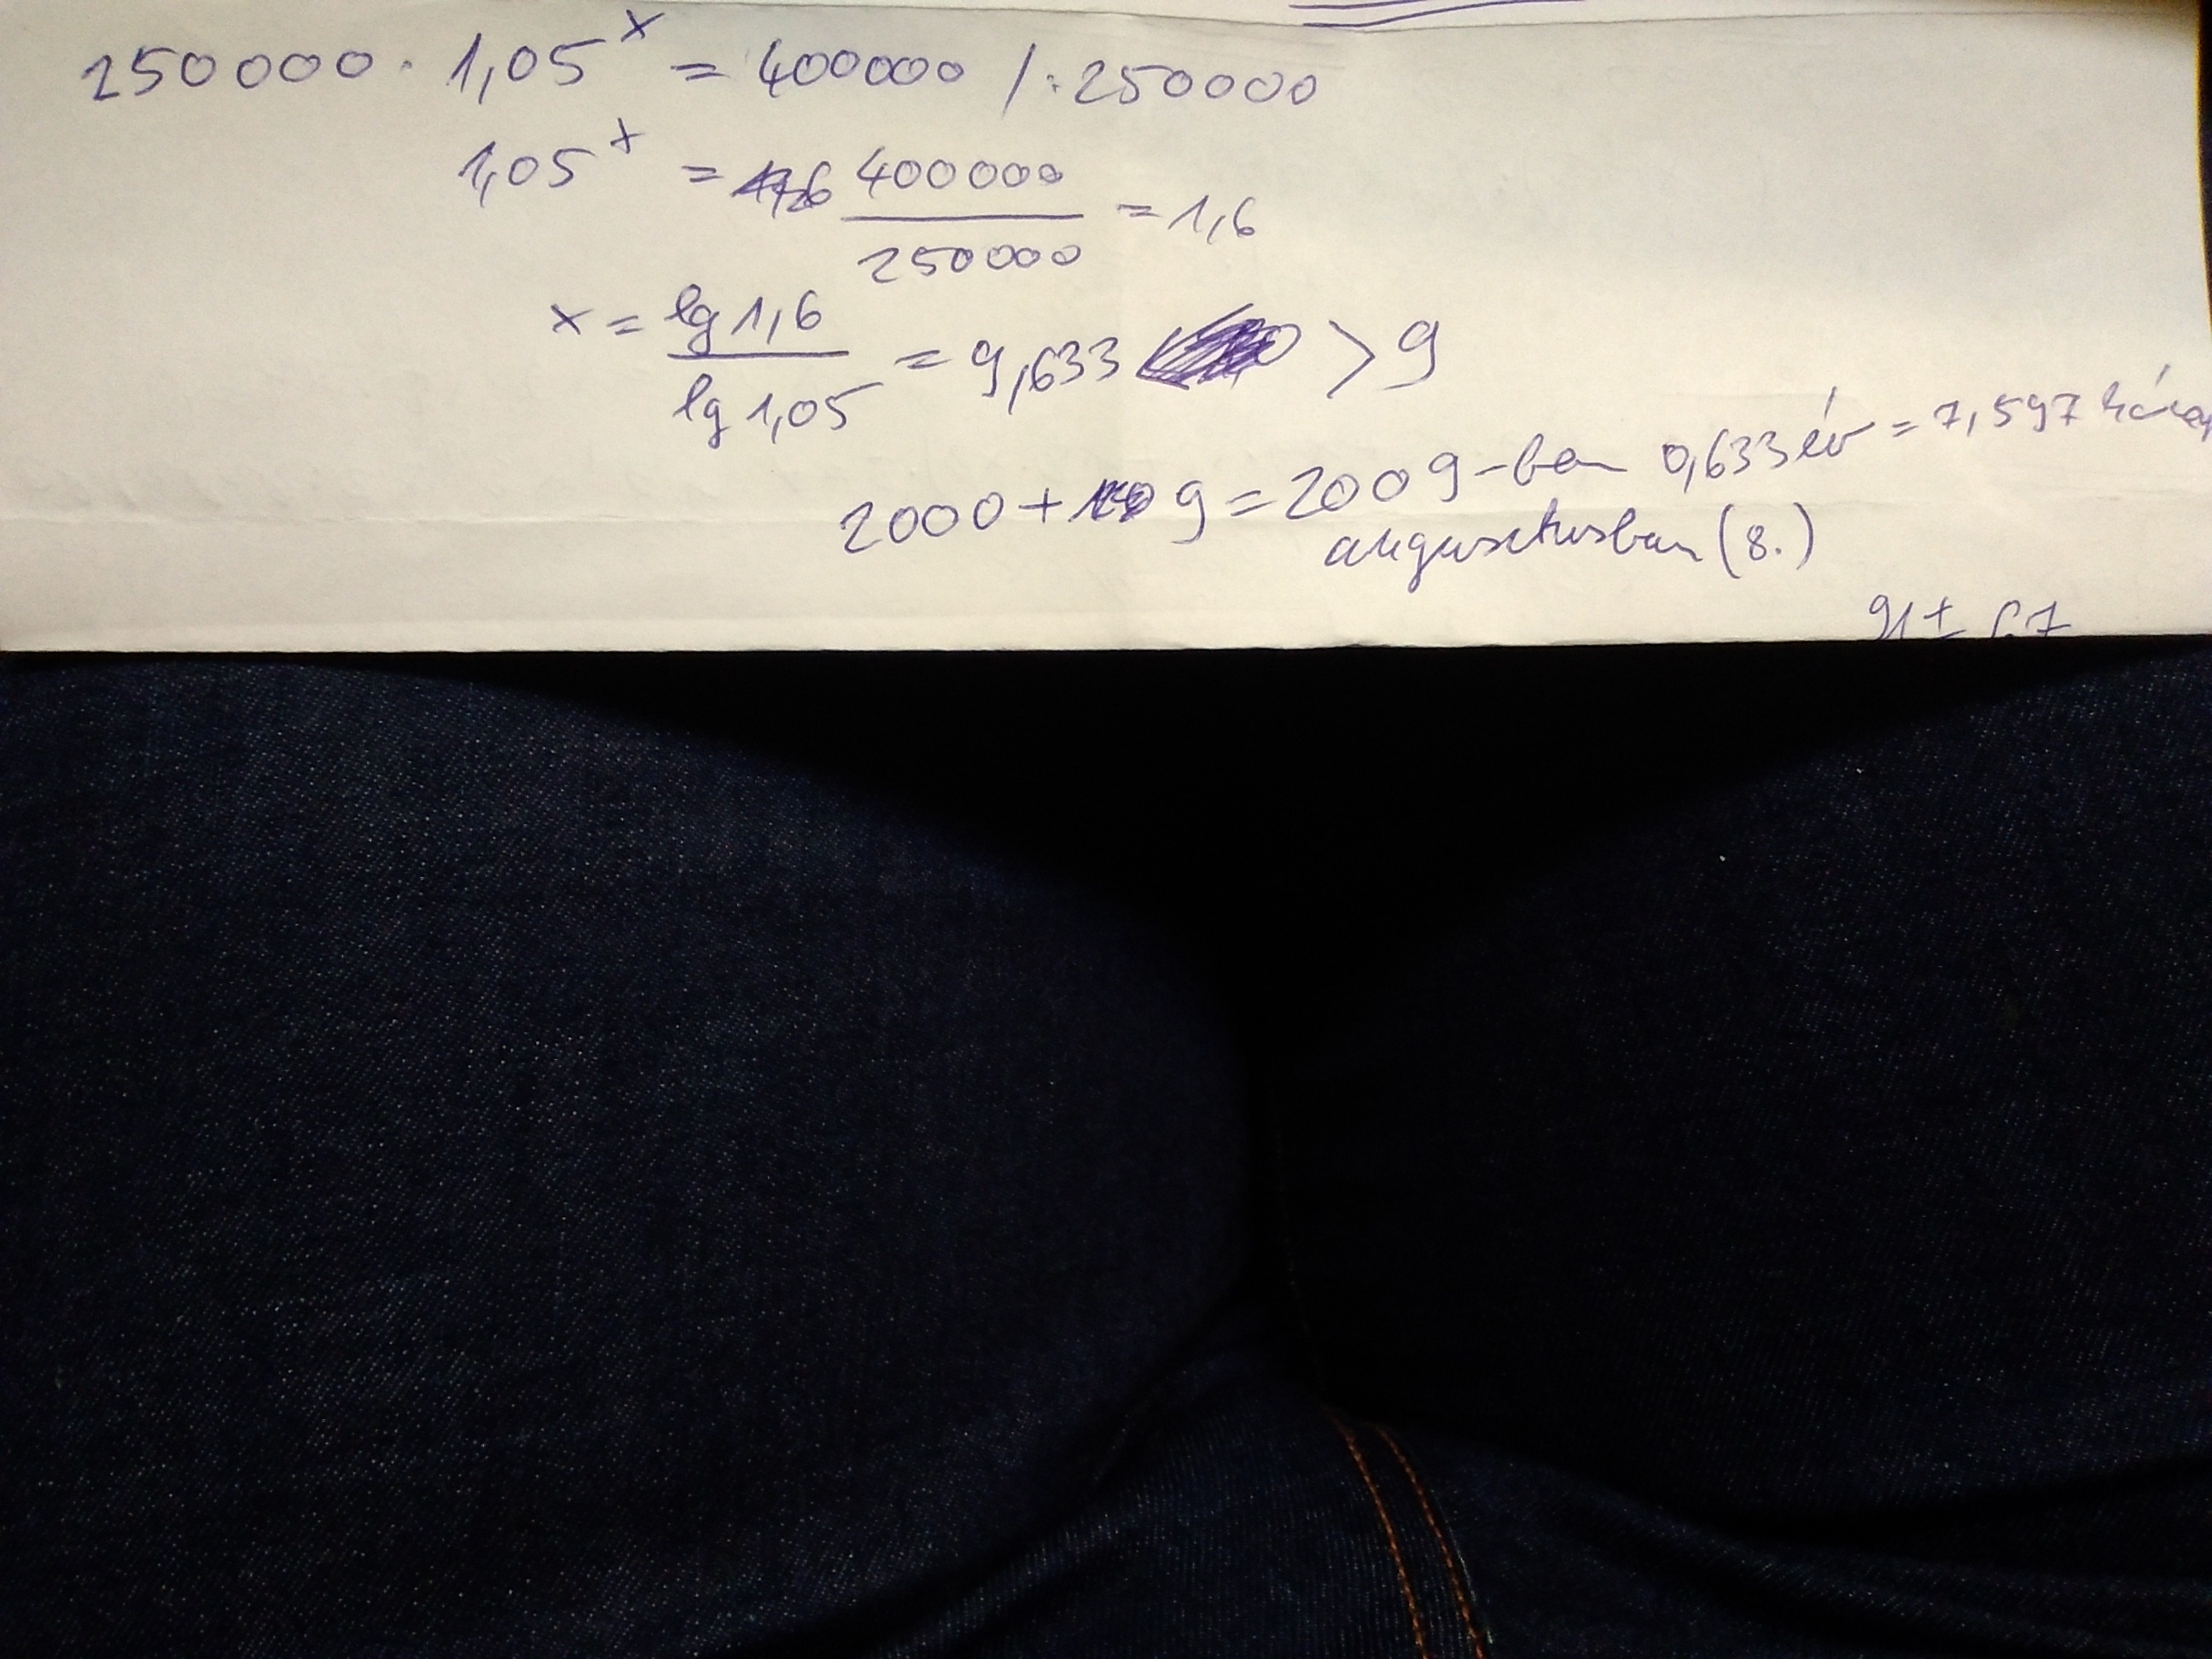 250000 · 1,05^x = 400000 /:250000
1,05^x = 400000/250000 = 1,6
x = lg 1,6/lg 1,05 = 9,633 > 9
2000 + 9 = 2009-ben 0,633 év = 7,597 hónap
augusztusban (8.)